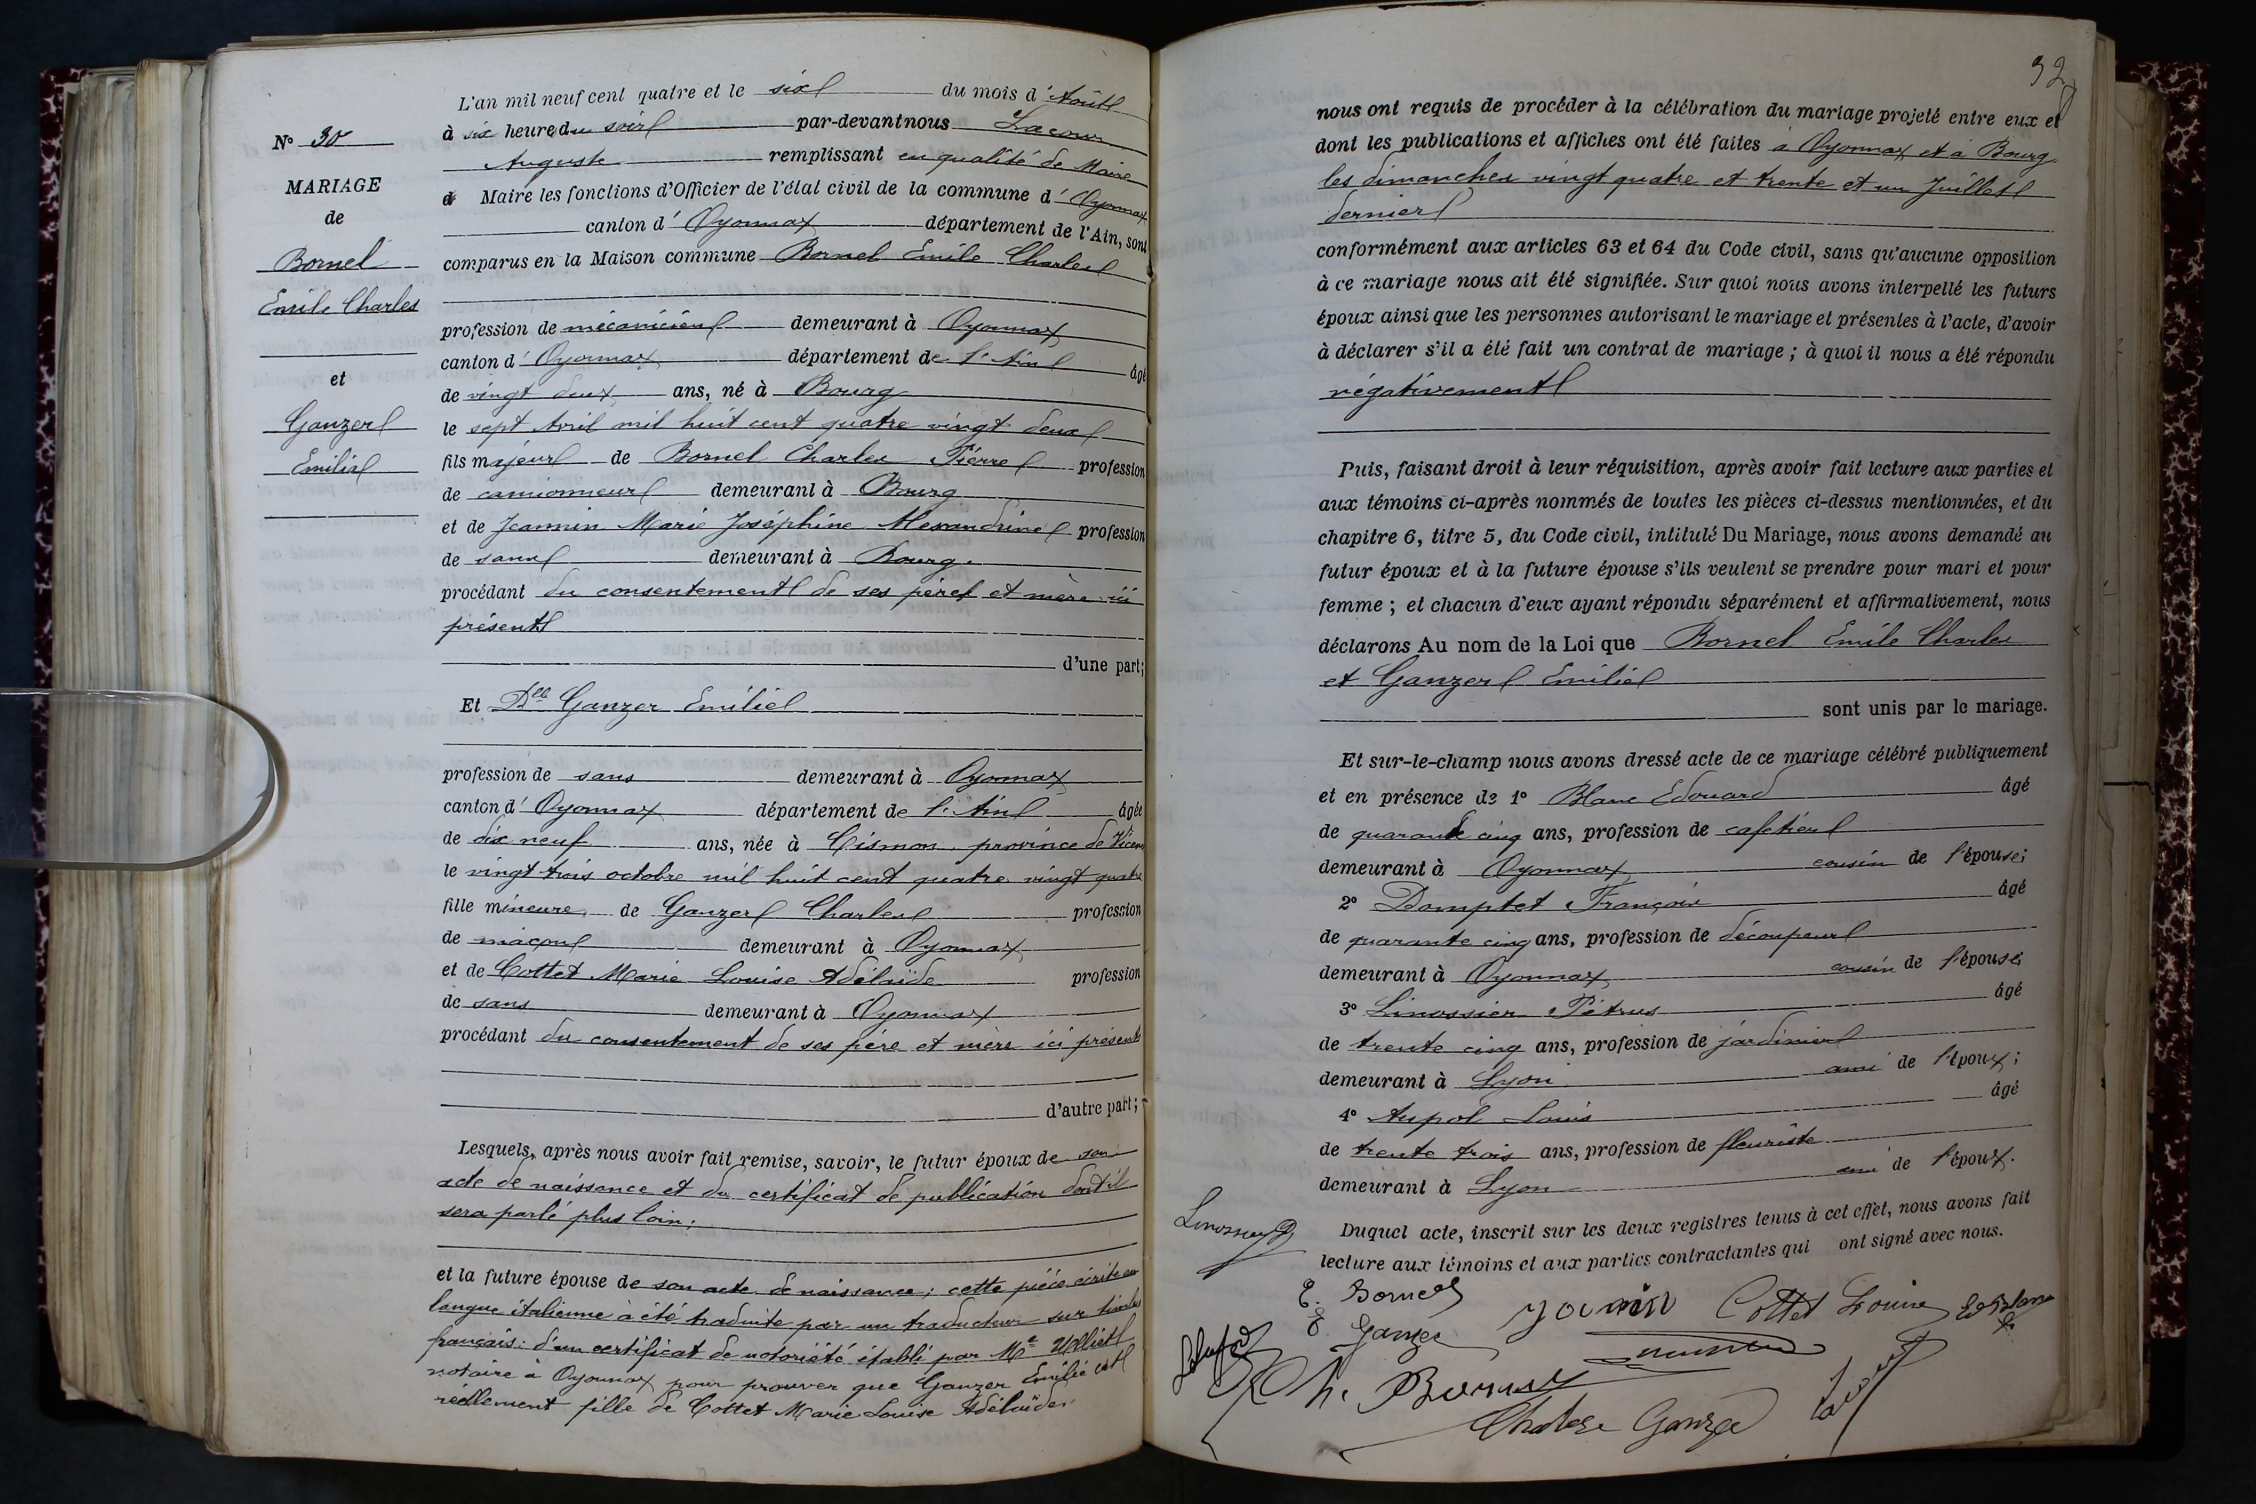 N° 30
MARIAGE
de
Bornel
Emile Charles
et
Ganzer
Emilie
L'an mil neuf cent quatre et le six du mois d'Août
à six heure du soir par-devant nous Lacour
Auguste remplissant en qualité de Maire
d Maire les fonctions d'Officier de l'état civil de la commune d'Oyonnax
canton d'Oyonnax département de l'Ain, sont
comparus en la Maison commune Bornel Emile Charles
profession de mécanicien demeurant à Oyonnax
canton d'Oyonnax département de l'Ain âgé
de vingt deux ans, né à Bourg
le sept Avril mil huit cent quatre vingt deux
fils majeur de Bornel Charles Pierre profession
de camionneur demeurant à Bourg
et de Jeannin Marie Joséphine Alexandrine profession
de sans demeurant à Bourg.
procédant du consentement de ses père et mère ici
présents
d'une part;
Et Dlle Ganzer Emilie
profession de sans demeurant à Oyonnax
canton d'Oyonnax département de l'Ain âgée
de dix neuf ans, née à Cismon province de
le vingt trois octobre mil huit cent quatre vingt quatre
fille mineure de Ganzer Charles profession
de maçon demeurant à Oyonnax
et de Cottet Marie Louise Adélaïde profession
de sans demeurant à Oyonnax
procédant du consentement de ses père et mère ici présents
d'autre part;
Lesquels, après nous avoir fait remise, savoir, le futur époux de son
acte de naissance et du certificat de publication dont il
sera parlé plus loin;
et la future épouse de son acte de naissance; cette pièce écrite en
langue italienne a été traduite par un traducteur sur timbre
français; d'un certificat de notoriété établi par Me
notaire à Oyonnax pour prouver que Ganzer Emilie est
réellement fille de Cottet Marie Louise Adélaïde.
32
nous ont requis de procéder à la célébration du mariage projeté entre eux et
dont les publications et affiches ont été faites à Oyonnax et à Bourg
les dimanches vingt quatre et trente et un Juillet
dernier
conformément aux articles 63 et 64 du Code civil, sans qu'aucune opposition
à ce mariage nous ait été signifiée. Sur quoi nous avons interpellé les futurs
époux ainsi que les personnes autorisant le mariage et présentes à l'acte, d'avoir
à déclarer s'il a été fait un contrat de mariage; à quoi il nous a été répondu
négativement
Puis, faisant droit à leur réquisition, après avoir fait lecture aux parties et
aux témoins ci-après nommés de toutes les pièces ci-dessus mentionnées, et du
chapitre 6, titre 5, du Code civil, intitulé Du Mariage, nous avons demandé au
futur époux et à la future épouse s'ils veulent se prendre pour mari et pour
femme; et chacun d'eux ayant répondu séparément et affirmativement, nous
déclarons Au nom de la Loi que Bornel Emile Charles
et Ganzer Emilie
sont unis par le mariage.
Et sur-le-champ nous avons dressé acte de ce mariage célébré publiquement
et en présence de 1° Blanc Edouard âgé
de quarante cinq ans, profession de cafetier
demeurant à Oyonnax cousin de l'épouse;
2° Domptet François âgé
de quarante cinq ans, profession de découpeur
demeurant à Oyonnax cousin de l'épouse;
3° Linossier Pétrus âgé
de trente cinq ans, profession de jardinier
demeurant à Lyon ami de l'époux;
4° Aupol Louis âgé
de trente trois ans, profession de fleuriste
demeurant à Lyon ami de l'époux.
Duquel acte, inscrit sur les deux registres tenus à cet effet, nous avons fait
lecture aux témoins et aux parties contractantes qui ont signé avec nous.
E. Bornel
E. Ganzer
Cottet Louise
Ch. Bornel
Ganzer